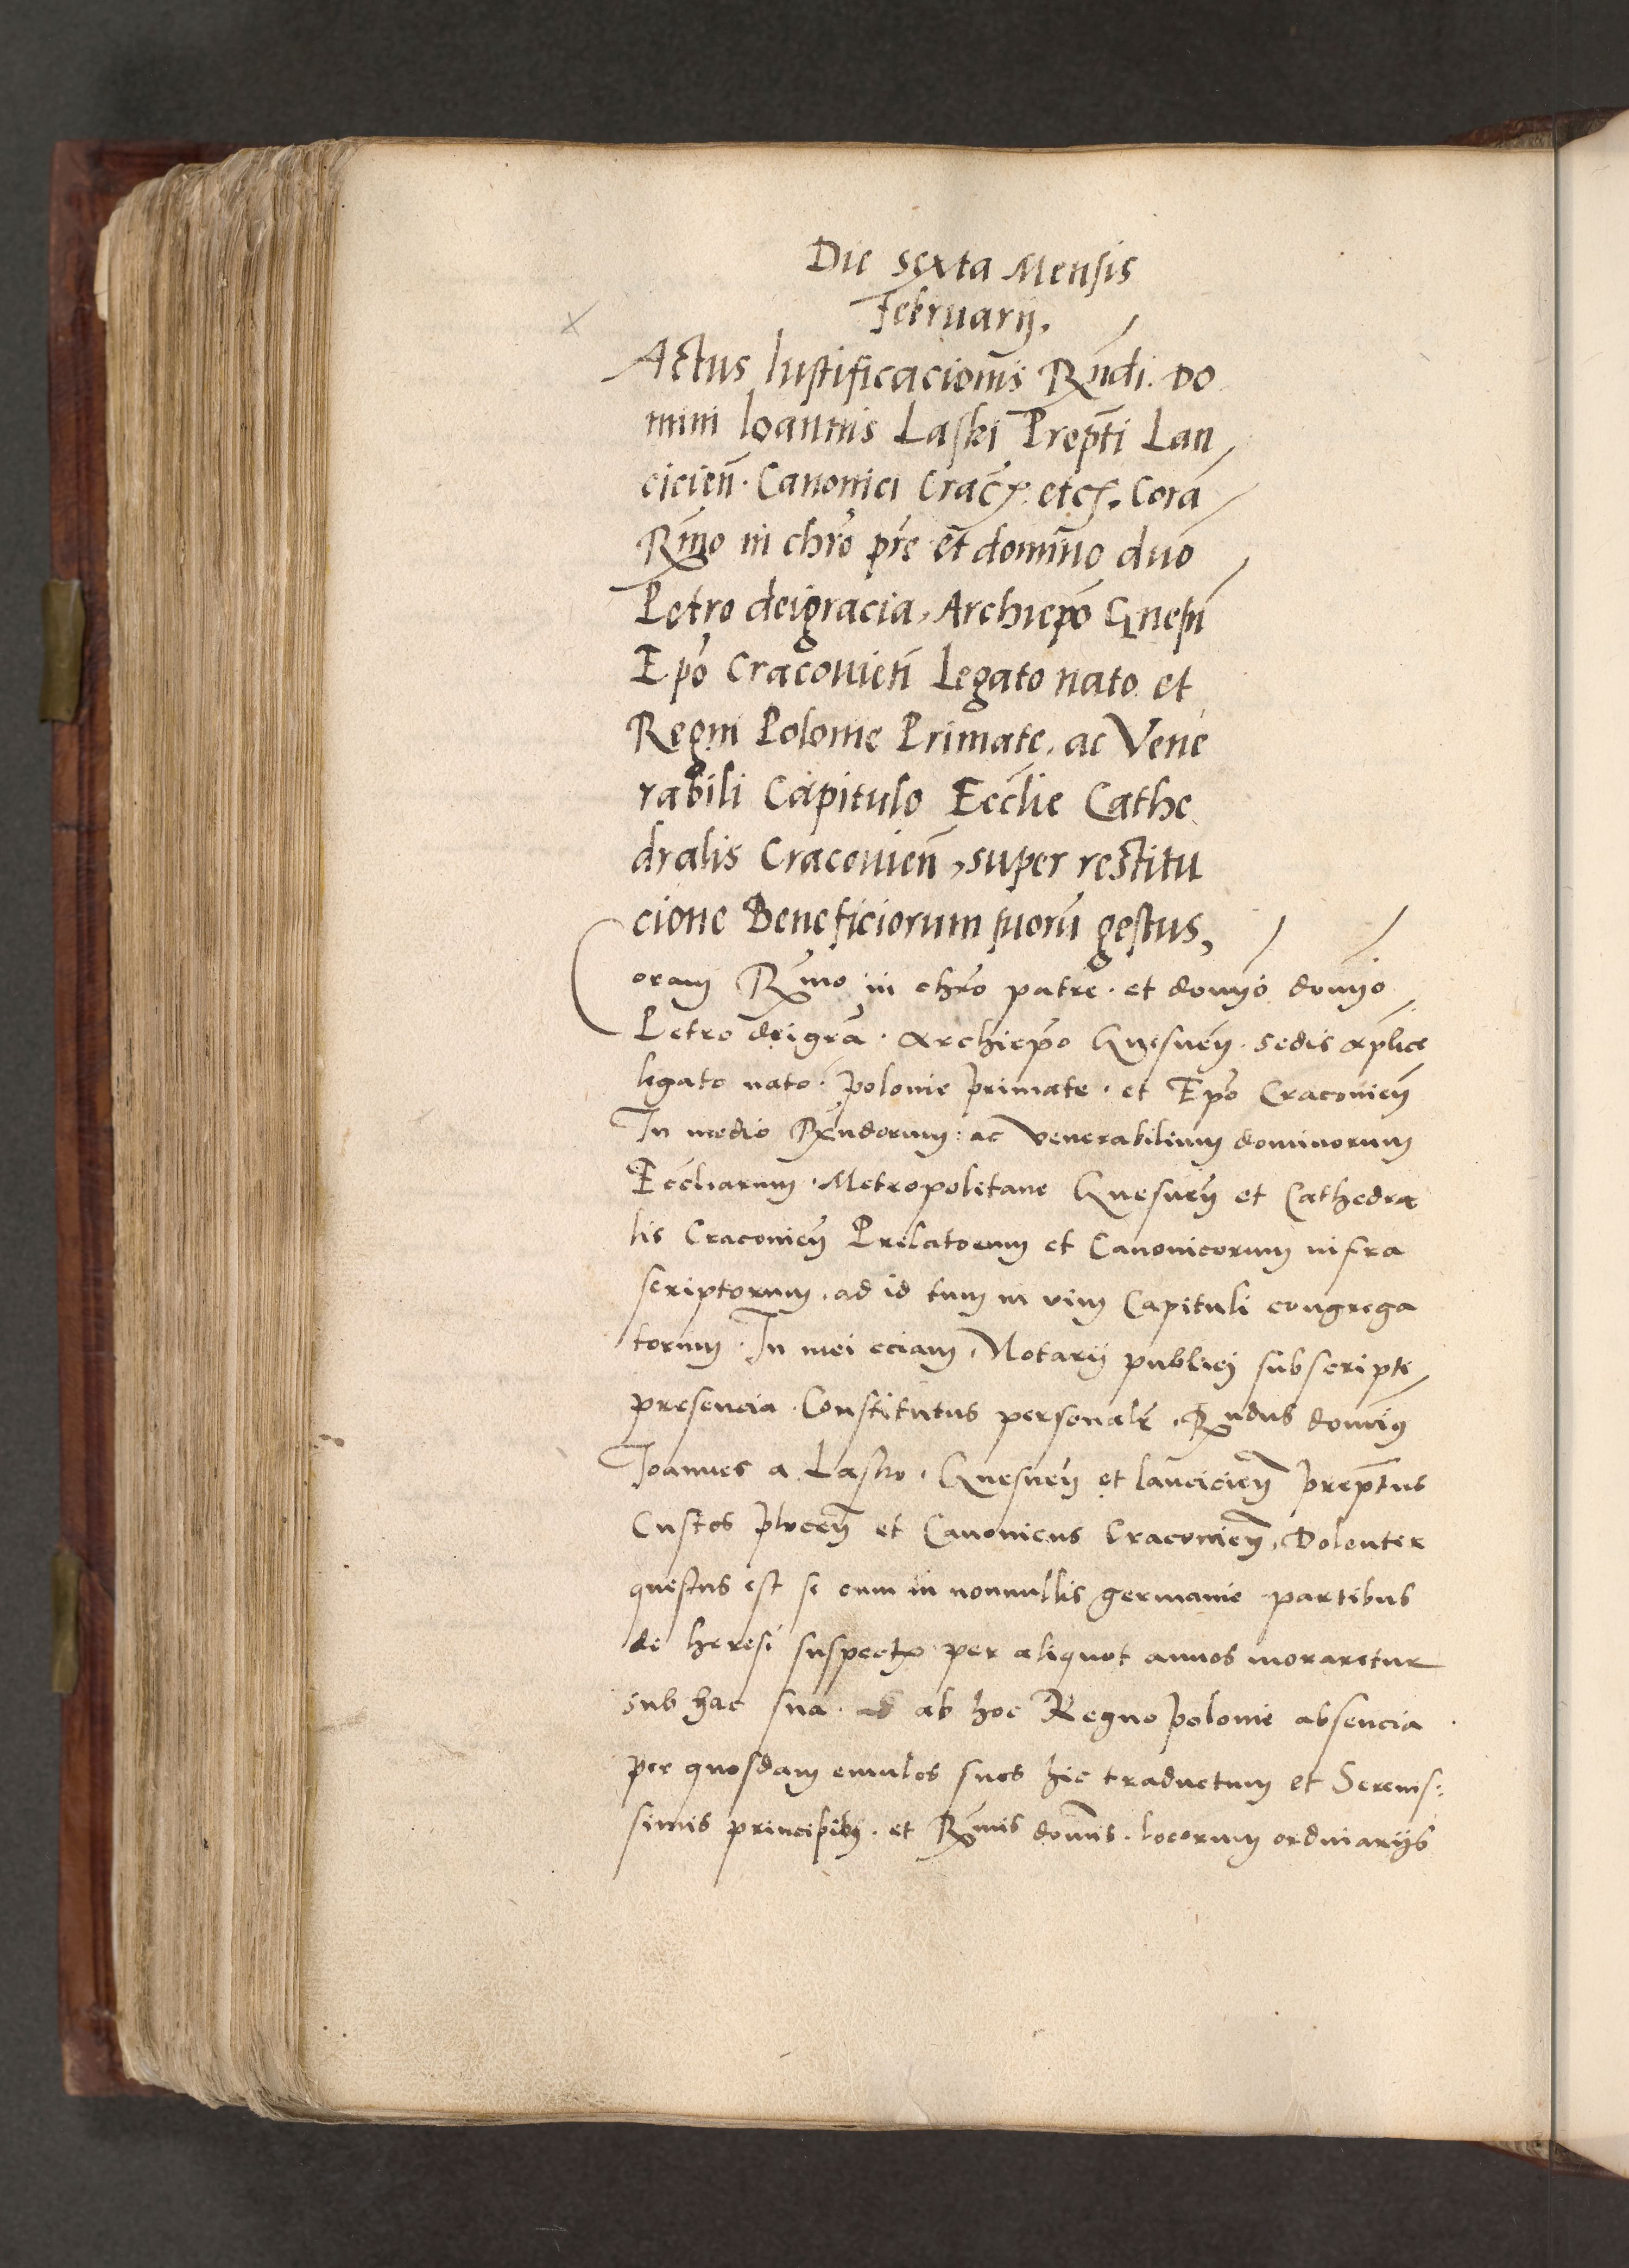 Die sexta Mensis
Februarij.
Actus Iustificacionis Rndi. Do
mini Ioannis Laski Prepti Lan
cicien. Canonici Crac etc. Cora
Rmo in chro pre et domino dno
Petro deigracia, Archiepo Gnesn
Epo Cracovien Legato nato et
Regni Polonie Primate, ac Vene
rabili Capitulo Ecclie Cathe
dralis Cracovien, super restitu
cione Beneficiorum suoru gestus,
Coram Rmo in chro patre. et domio domio
Petro deigra. Archiepo Gnesnen. sedis aplice
legato nato. polonie primate. et Epo Cracovien
In medio Rndorum: ac venerabilium dominorum
Eccliarum. Metropolitane Gnesnen et Cathedra
lis Cracovien Prelatorum et Canonicorum infra
scriptorum. ad id tum in vim Capituli congrega
torum. In mei eciam. Notarij publici subscripti
presencia. Constitutus personalr. Rndus domis
Ioannes a Lasko. Gnesnen et lancicien preptus
Custos plocen et Canonicus Cracovien. Dolenter
questus est se cum in nonnullis germanie partibus
de heresi suspectis per aliquot annos moraretur
sub hac sua. ab hoc Regno polonie absencia
per quosdam emulos suos hic traductum et Serenis:
simis principibus. et Rmis domis. locorum ordinarijs